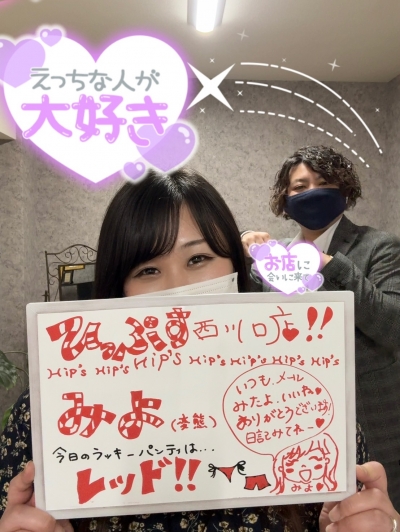 えっちな人が
大好き
お店に
会いに来て
ひっぷす西川口店!!
Hip's Hip's Hip's Hip's Hip's Hip's Hip's
みよ(変態)
今日のラッキーパンティは…
レッド!!
いつも、メール
みたよ、いいね
ありがとうございます!
日記みてねー
みよ